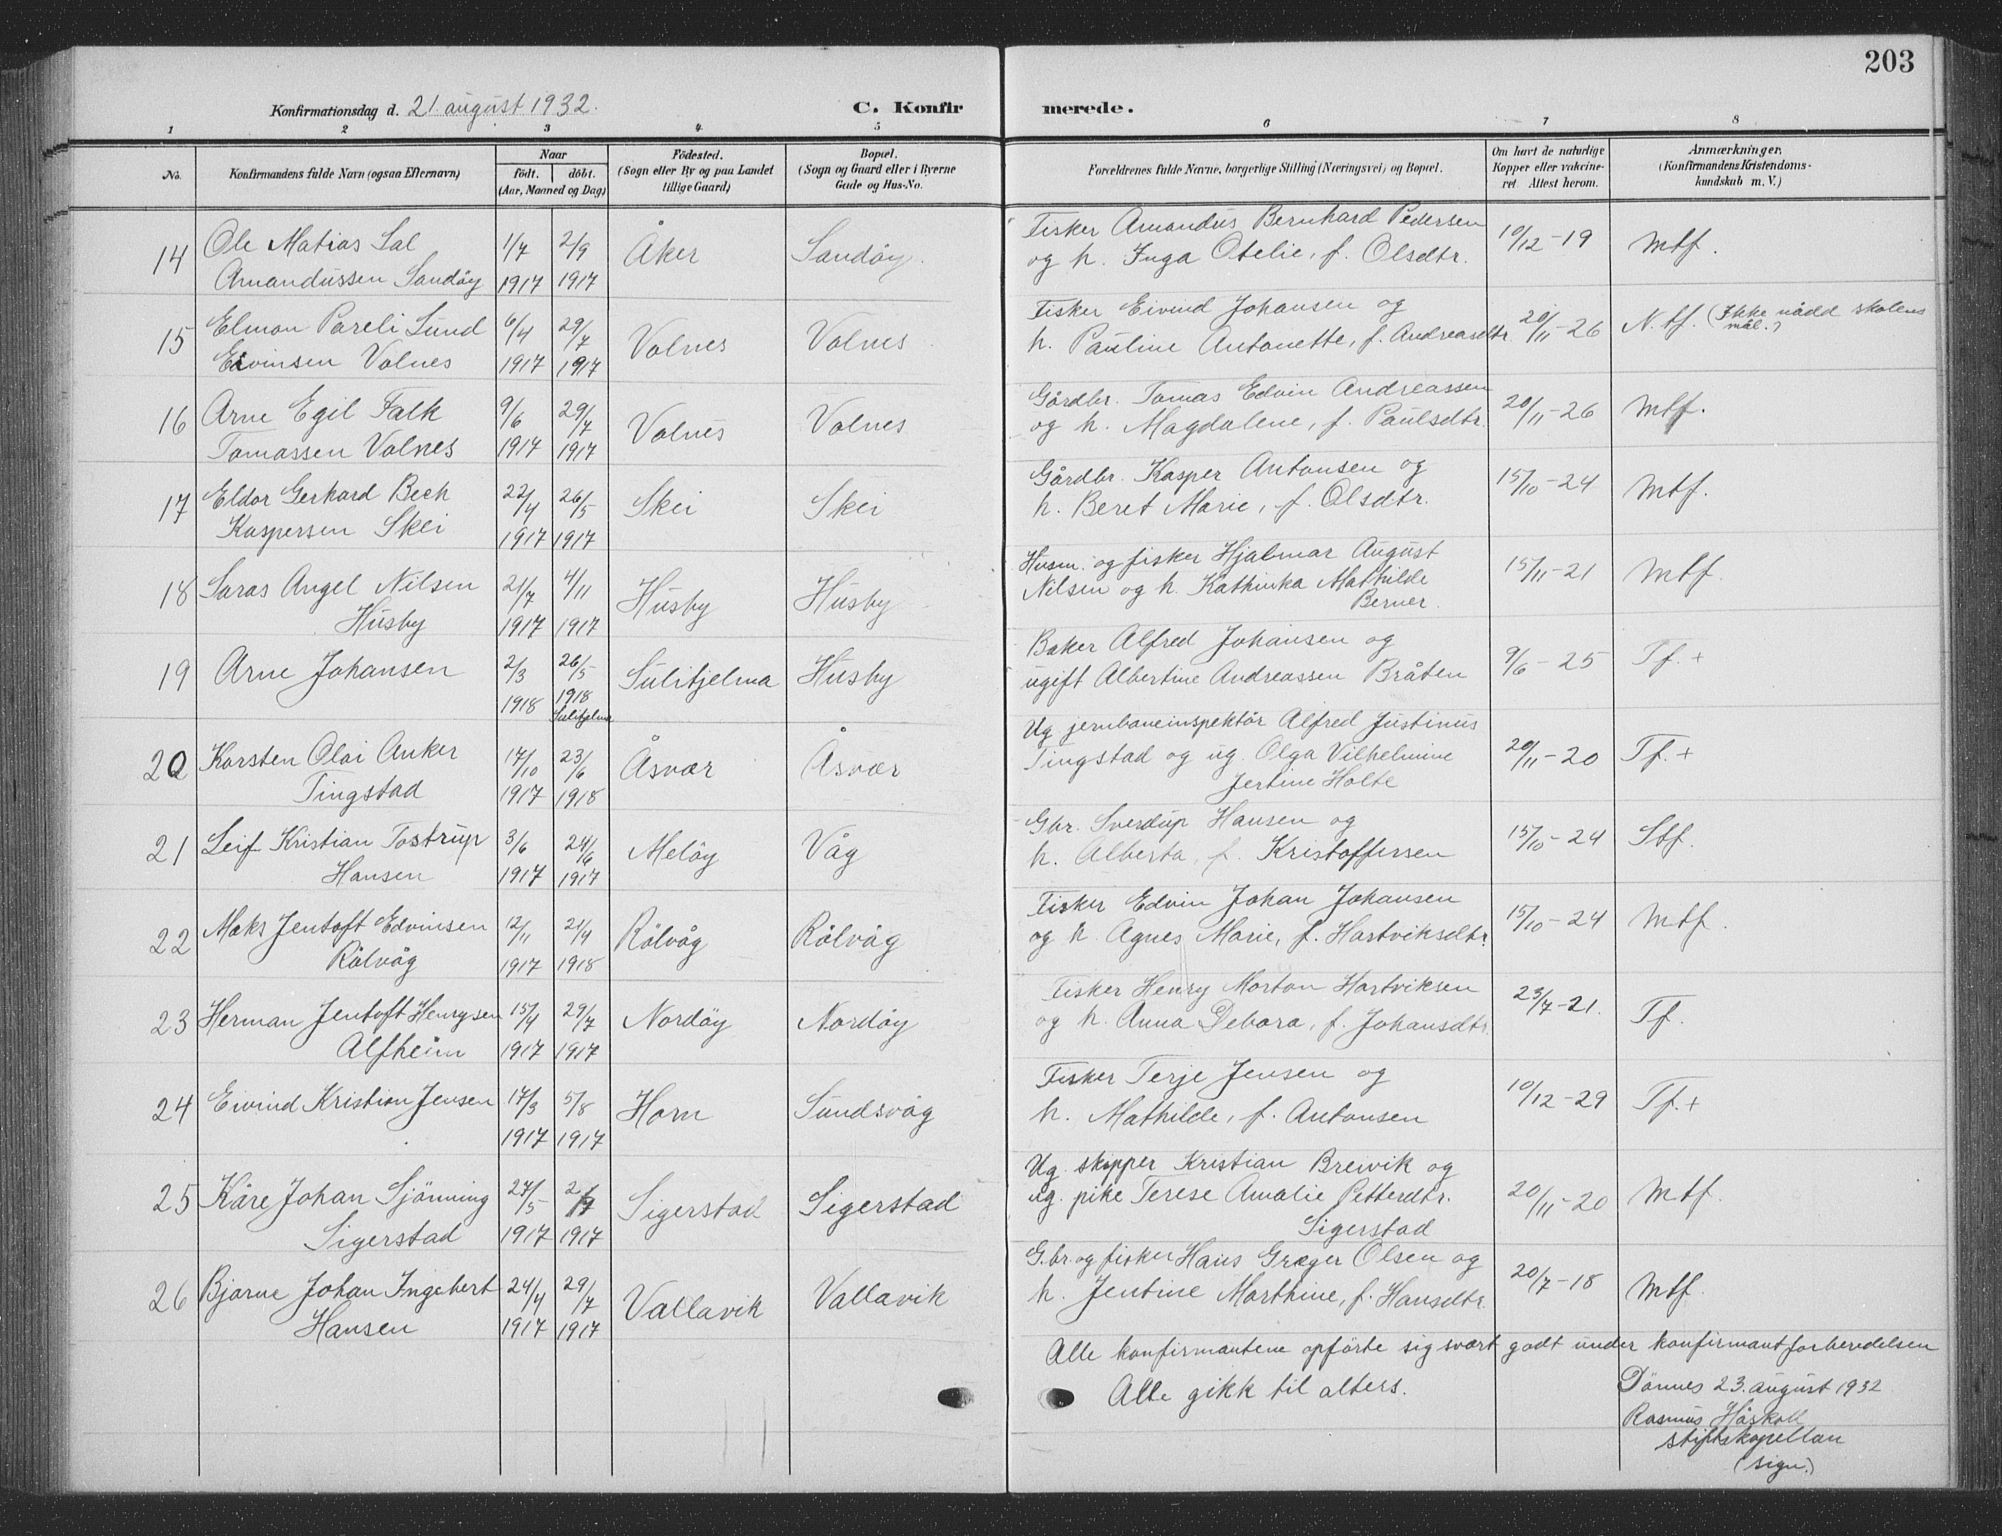 203
Konfirmationsdag d. 21. august 1932. C. Konfirmerede.
1 2 3 4 5 6 7 8
No.
Konfirmandens fulde Navn (ogsaa Efternavn)
Naar
födt. döbt.
(Aar, Maaned og Dag)
Födested.
(Sogn eller By og paa Landet
tillige Gaard)
Bopæl.
(Sogn og Gaard eller i Byerne
Gade og Hus-No.
Forældrenes fulde Navne, borgerlige Stilling (Næringsvei) og Bopæl.
Om havt de naturlige
Kopper eller vakcine-
ret Attest herom.
Anmærkninger.
(Konfirmandens Kristendoms-
kundskab m. V.)
14 Ole Matias Sal 1/7 2/9 Åker Sandöy. Fisker Amandus Bernhard Pedersen 10/12-19 Mtf.
Amandussen Sandöy 1917 1917 og h. Inga Otelie, f. Olsdtr.
15 Elmon Pareli Lund 6/4 29/7 Valnes Valnes Fisker Eivind Johansen og 20/11-26 N.tf. (Ikke nådd skolens
mål.)
Eivinsen Valnes 1917 1917 h. Pauline Antonette, f. Andreasdtr.
16 Arne Egil Falk 9/6 29/7 Valnes Valnes Gårdbr. Tomas Edvin Andreassen 20/11-26 Mtf.
Tomassen Valnes 1917 1917 og h. Magdalene, f. Paulsdtr.
17 Eldor Gerhard Bech 22/4 26/5 Skei Skei Gårdbr. Kasper Antonsen og 15/10-24 Mtf.
Kaspersen Skei 1917 1917 h. Beret Marie, f. Olsdtr.
18 Saras Angel Nilsen 21/7 4/11 Husby Husby Husm. og fisker Hjalmar August 15/11-21 Mtf.
Husby 1917 1917 Nilsen og h. Kathinka Mathilde
Berner.
19 Arne Johansen 2/3 26/5 Sulitjelma Husby Baker Alfred Johansen og 9/6-25 Tf.+
1918 1918 ugift Albertine Andreassen Bråten
Sulitjelma
20 Karsten Olai Anker 17/10 23/6 Åsvær Åsvær Ug jernbaneinspektör Alfred Justinus 20/11-20 Tf.+
Tingstad 1917 1918 Tingstad og ug. Olga Vilhelmine
Jertine Holte
21 Leif Kristian Tostrup 3/6 24/6 Melöy Våg Gbr. Sverdup Hansen og 15/10-24 Stf.
Hansen 1917 1917 h. Alberta, f. Kristoffersen
22 Maks Jentoft Edvinsen 12/11 21/4 Rölvåg Rölvåg Fisker Edvin Johan Johansen 15/10-24 Mtf.
Rölvåg 1917 1918 og h. Agnes Marie, f. Hartviksdtr.
23 Herman Jentoft Henrysen 15/4 29/7 Nordöy Nordöy Fisker Henry Morton Hartviksen 23/7-21. Tf.
Alfheim 1917 1917 og h. Anna Debora, f. Johansdtr.
24 Eivind Kristian Jensen 17/3 5/8 Horn Sundsvåg Fisker Terje Jensen og 10/12-29 Tf.+
1917 1917 h. Mathilde, f. Antonsen
25 Kåre Johan Sjönning 27/5 Sigerstad Sigerstad Ug. skipper Kristian Breivik og 20/11-20 Mtf.
Sigerstad 1917 1917 ug. pike Terese Amalie Pettersdtr.
Sigerstad
26 Bjarne Johan Ingebert 24/4 29/7 Vallavik Vallavik G.br. og fisker Hans Græger Olsen og 20/7-18 Mtf.
Hansen 1917 1917 h. Jentine Marthine, f. Hansdtr.
Alle konfirmantene opförte sig svært godt under konfirmantforberedelsen
Alle gikk til alters.
Dönnes 23. august 1932
Rasmus Håskoll
stiftskapellan
(sign.)